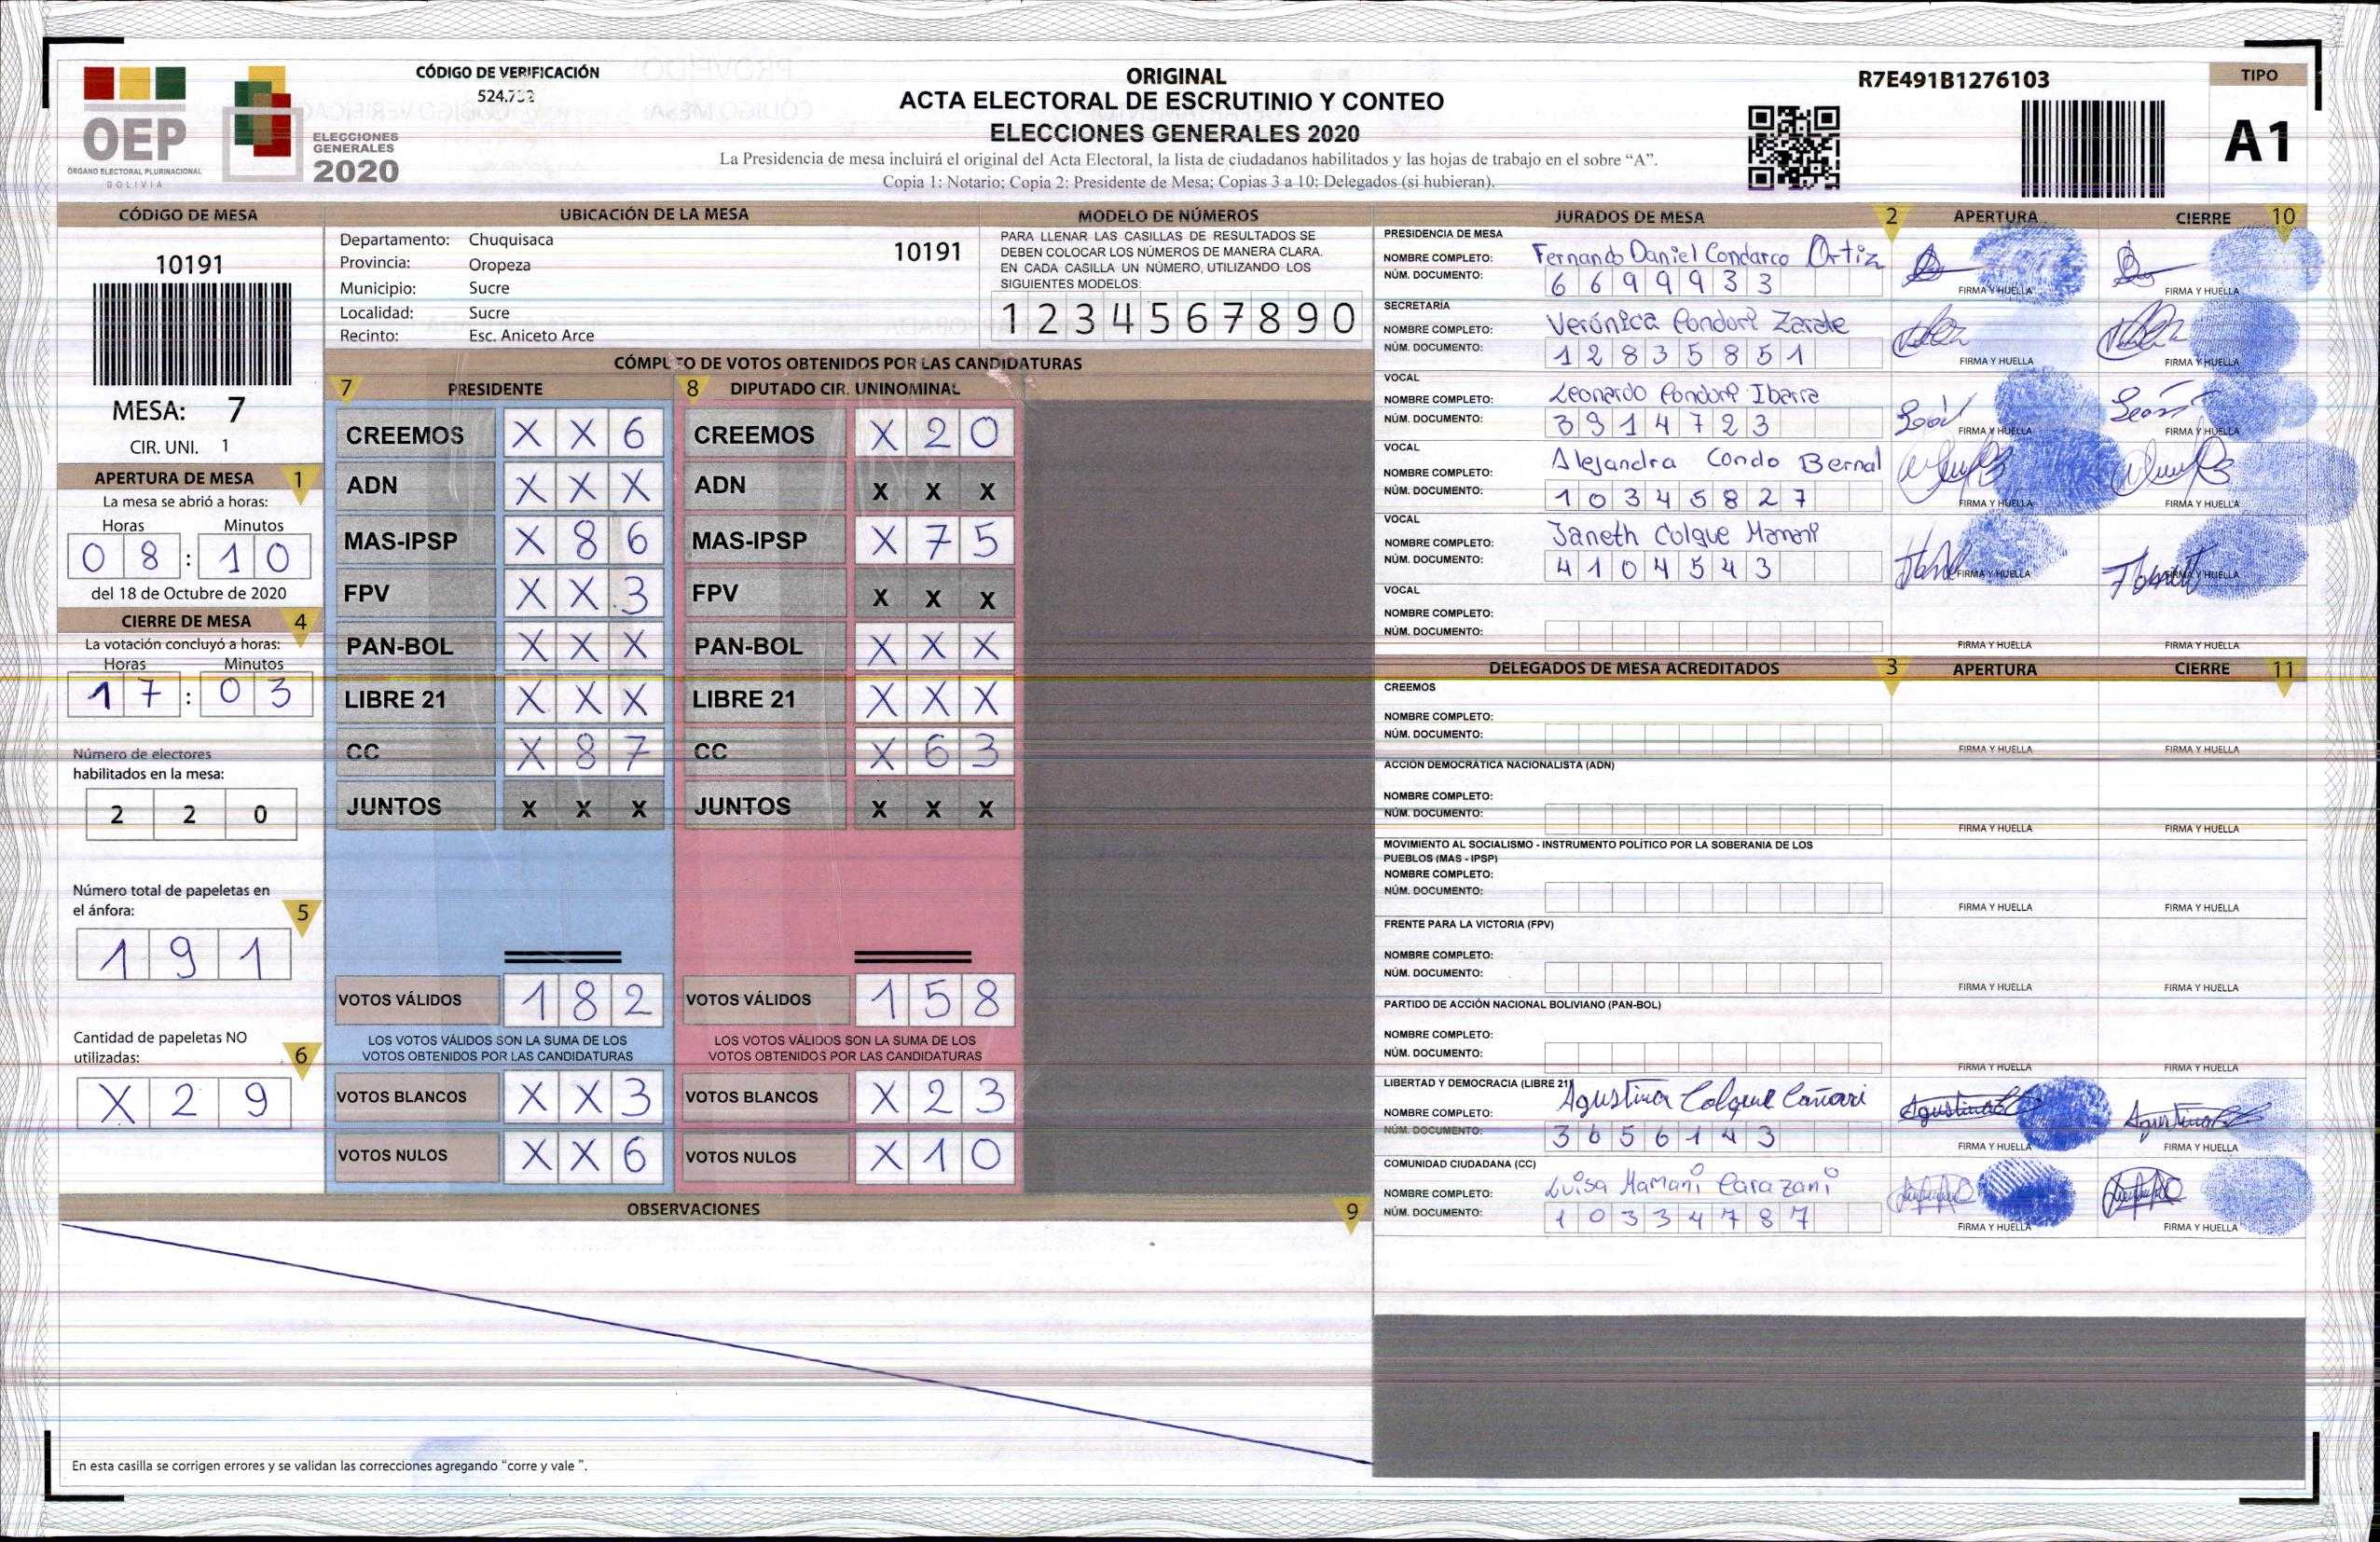 OEP
ÓRGANO ELECTORAL PLURINACIONAL
BOLIVIA
ELECCIONES
GENERALES
2020
CÓDIGO DE VERIFICACIÓN
ORIGINAL
ACTA ELECTORAL DE ESCRUTINIO Y CONTEO
ELECCIONES GENERALES 2020
La Presidencia de mesa incluirá el original del Acta Electoral, la lista de ciudadanos habilitados y las hojas de trabajo en el sobre “A”.
Copia 1: Notario; Copia 2: Presidente de Mesa; Copias 3 a 10: Delegados (si hubieran).
R7E491B1276103
TIPO
A1
CÓDIGO DE MESA
10191
MESA: 7
CIR. UNI. 1
APERTURA DE MESA 1
La mesa se abrió a horas:
Horas Minutos
08 : 10
del 18 de Octubre de 2020
CIERRE DE MESA 4
La votación concluyó a horas:
Horas Minutos
17 : 03
Número de electores
habilitados en la mesa:
2 2 0
Número total de papeletas en
el ánfora: 5
1 9 1
Cantidad de papeletas NO
utilizadas: 6
X 2 9
UBICACIÓN DE LA MESA
Departamento: Chuquisaca 10191
Provincia: Oropeza
Municipio: Sucre
Localidad: Sucre
Recinto: Esc. Aniceto Arce
MODELO DE NÚMEROS
PARA LLENAR LAS CASILLAS DE RESULTADOS SE
DEBEN COLOCAR LOS NÚMEROS DE MANERA CLARA.
EN CADA CASILLA UN NÚMERO, UTILIZANDO LOS
SIGUIENTES MODELOS:
1 2 3 4 5 6 7 8 9 0
CÓMPUTO DE VOTOS OBTENIDOS POR LAS CANDIDATURAS
7 PRESIDENTE 8 DIPUTADO CIR. UNINOMINAL
CREEMOS X X 6 CREEMOS X 2 0
ADN X X X ADN X X X
MAS-IPSP X 8 6 MAS-IPSP X 7 5
FPV X X 3 FPV X X X
PAN-BOL X X X PAN-BOL X X X
LIBRE 21 X X X LIBRE 21 X X X
CC X 8 7 CC X 6 3
JUNTOS X X X JUNTOS X X X
VOTOS VÁLIDOS 1 8 2 VOTOS VÁLIDOS 1 5 8
LOS VOTOS VÁLIDOS SON LA SUMA DE LOS LOS VOTOS VÁLIDOS SON LA SUMA DE LOS
VOTOS OBTENIDOS POR LAS CANDIDATURAS VOTOS OBTENIDOS POR LAS CANDIDATURAS
VOTOS BLANCOS X X 3 VOTOS BLANCOS X 2 3
VOTOS NULOS X X 6 VOTOS NULOS X 1 0
OBSERVACIONES 9
En esta casilla se corrigen errores y se validan las correcciones agregando “corre y vale ”.
JURADOS DE MESA 2 APERTURA CIERRE 10
PRESIDENCIA DE MESA
NOMBRE COMPLETO: Fernando Daniel Condarco Ortiz
NÚM. DOCUMENTO: 6699933
FIRMA Y HUELLA FIRMA Y HUELLA
SECRETARÍA
NOMBRE COMPLETO: Verónica Condori Zarate
NÚM. DOCUMENTO: 12835851
FIRMA Y HUELLA FIRMA Y HUELLA
VOCAL
NOMBRE COMPLETO: Leonardo Condori Ibarra
NÚM. DOCUMENTO: 3914723
FIRMA Y HUELLA FIRMA Y HUELLA
VOCAL
NOMBRE COMPLETO: Alejandra Condo Bernal
NÚM. DOCUMENTO: 10345827
FIRMA Y HUELLA FIRMA Y HUELLA
VOCAL
NOMBRE COMPLETO: Janeth Colque Mamani
NÚM. DOCUMENTO: 4104543
FIRMA Y HUELLA FIRMA Y HUELLA
VOCAL
NOMBRE COMPLETO:
NÚM. DOCUMENTO:
FIRMA Y HUELLA FIRMA Y HUELLA
DELEGADOS DE MESA ACREDITADOS 3 APERTURA CIERRE 11
CREEMOS
NOMBRE COMPLETO:
NÚM. DOCUMENTO:
FIRMA Y HUELLA FIRMA Y HUELLA
ACCIÓN DEMOCRÁTICA NACIONALISTA (ADN)
NOMBRE COMPLETO:
NÚM. DOCUMENTO:
FIRMA Y HUELLA FIRMA Y HUELLA
MOVIMIENTO AL SOCIALISMO - INSTRUMENTO POLÍTICO POR LA SOBERANIA DE LOS
PUEBLOS (MAS - IPSP)
NOMBRE COMPLETO:
NÚM. DOCUMENTO:
FIRMA Y HUELLA FIRMA Y HUELLA
FRENTE PARA LA VICTORIA (FPV)
NOMBRE COMPLETO:
NÚM. DOCUMENTO:
FIRMA Y HUELLA FIRMA Y HUELLA
PARTIDO DE ACCIÓN NACIONAL BOLIVIANO (PAN-BOL)
NOMBRE COMPLETO:
NÚM. DOCUMENTO:
FIRMA Y HUELLA FIRMA Y HUELLA
LIBERTAD Y DEMOCRACIA (LIBRE 21)
NOMBRE COMPLETO: Agustina Colque Cañari
NÚM. DOCUMENTO: 3656143
FIRMA Y HUELLA FIRMA Y HUELLA
COMUNIDAD CIUDADANA (CC)
NOMBRE COMPLETO: Luisa Mamani Carazani
NÚM. DOCUMENTO: 10334787
FIRMA Y HUELLA FIRMA Y HUELLA